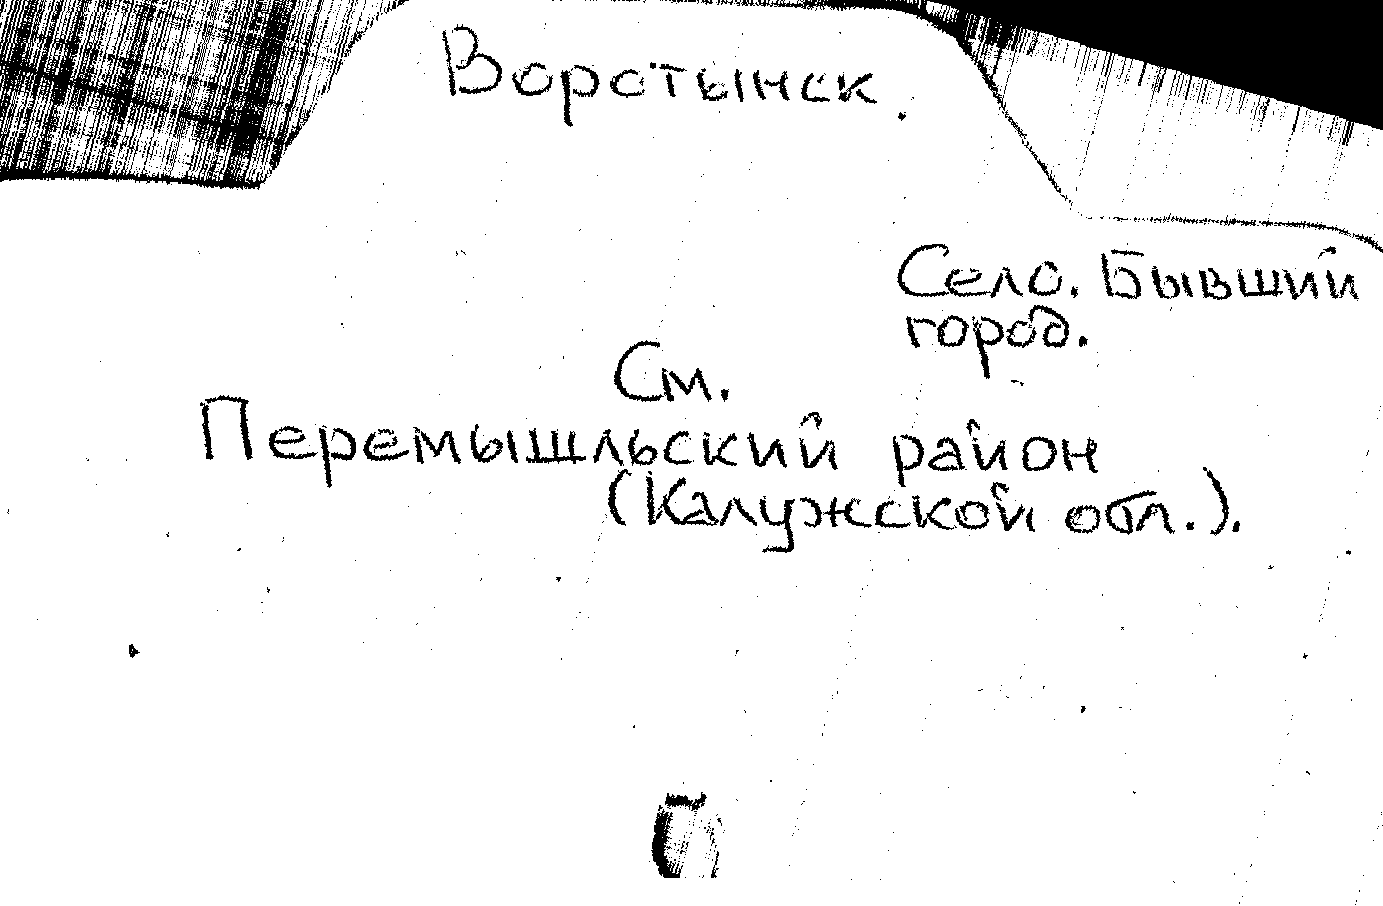 Воротынск
Село. Бывший
город.
См.
Перемышльский район
(Калужской обл.).